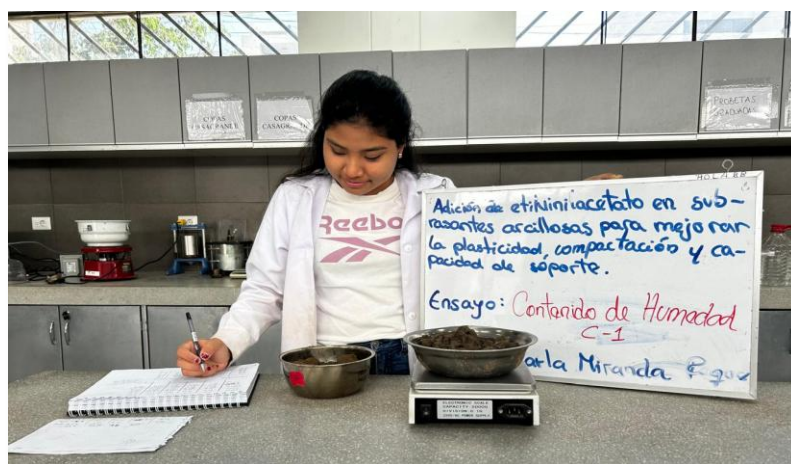 COPAS
CASAGRANDE
COPAS
PROBETAS
GRADUADAS
Reebo
Adición de etilvinilacetato en sub-
rasantes arcillosas para mejorar
la plasticidad, compactación y ca-
pacidad de soporte.
Ensayo: Contenido de Humedad
C-1
arla Miranda
ELECTRONIC SCALE